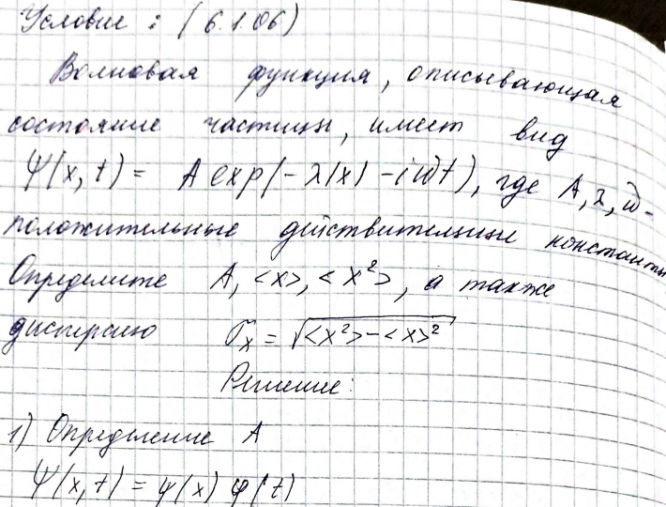 Условие: (6.1.06)
Волновая функция, описывающая
состояние частицы, имеет вид
Ψ(x, t) = A exp(-λ|x| - iωt), где A, λ, ω -
положительные действительные константы
Определите A, <x>, <x²>, а также
дисперсию σₓ = √<x²> - <x>²
Решение:
1) Определение A
Ψ(x, t) = ψ(x) φ(t)